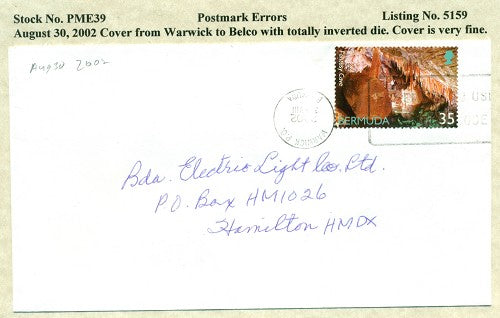 Stock No. PME39 Postmark Errors Listing No. 5159
August 30, 2002 Cover from Warwick to Belco with totally inverted die. Cover is very fine.
Aug 30 2002
Crystal Cave
BERMUDA 35
WARWICK
Bda. Electric Light Co. Ltd.
P.O. Box HM1026
Hamilton HMDX